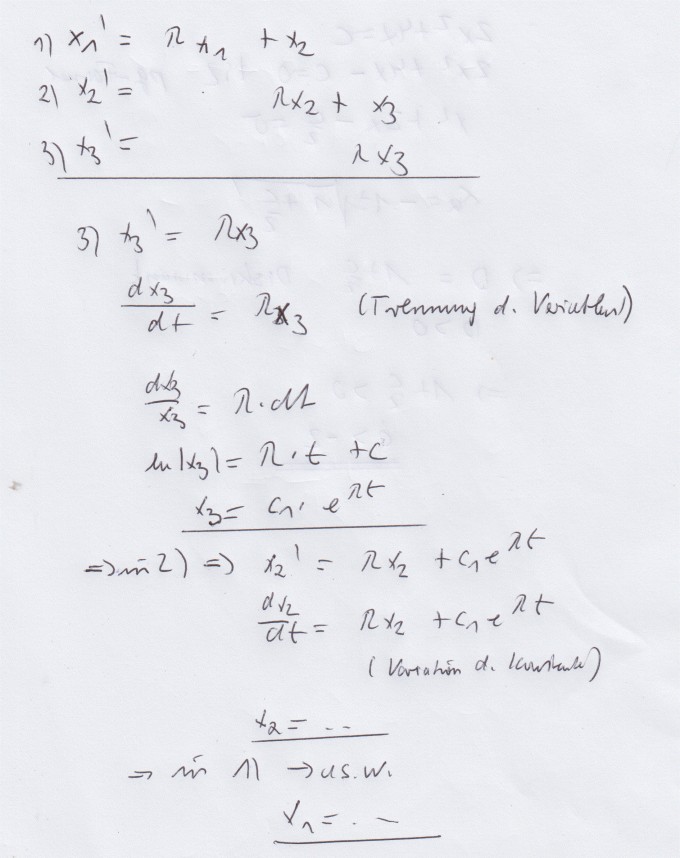 1) x₁' = λ x₁ + x₂
2) x₂' = λx₂ + x₃
3) x₃' = λx₃
3) x₃' = λx₃
dx₃/dt = λx₃ (Trennung d. Variablen)
dx₃/x₃ = λ·dt
ln|x₃| = λ·t + C
x₃ = C₁· e^λt
=> in 2) => x₂' = λx₂ + C₁e^λt
dx₂/dt = λx₂ + C₁e^λt
(Variation d. Konstante)
x₂ = ..
=> in 1) → u.s.w.
x₁ = ..